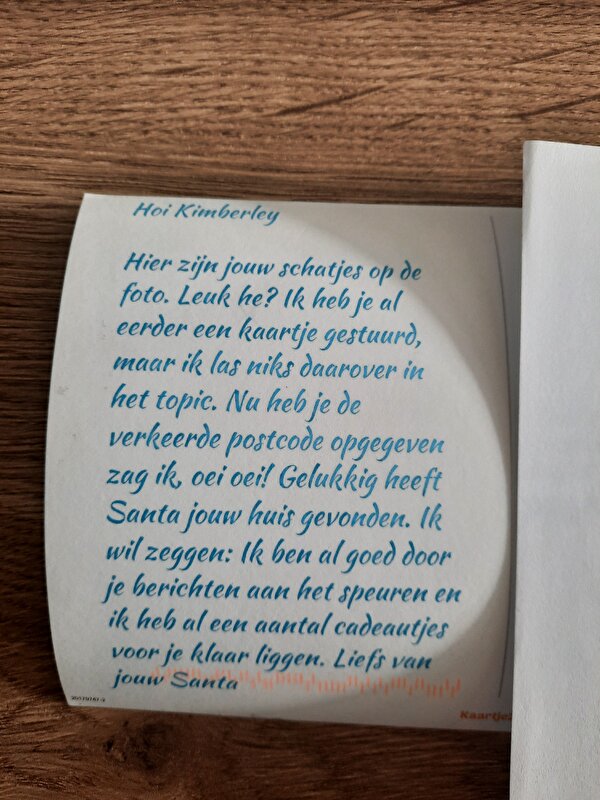 Hoi Kimberley
Hier zijn jouw schatjes op de
foto. Leuk he? Ik heb je al
eerder een kaartje gestuurd,
maar ik las niks daarover in
het topic. Nu heb je de
verkeerde postcode opgegeven
zag ik, oei oei! Gelukkig heeft
Santa jouw huis gevonden. Ik
wil zeggen: Ik ben al goed door
je berichten aan het speuren en
ik heb al een aantal cadeautjes
voor je klaar liggen. Liefs van
jouw Santa
Kaartje